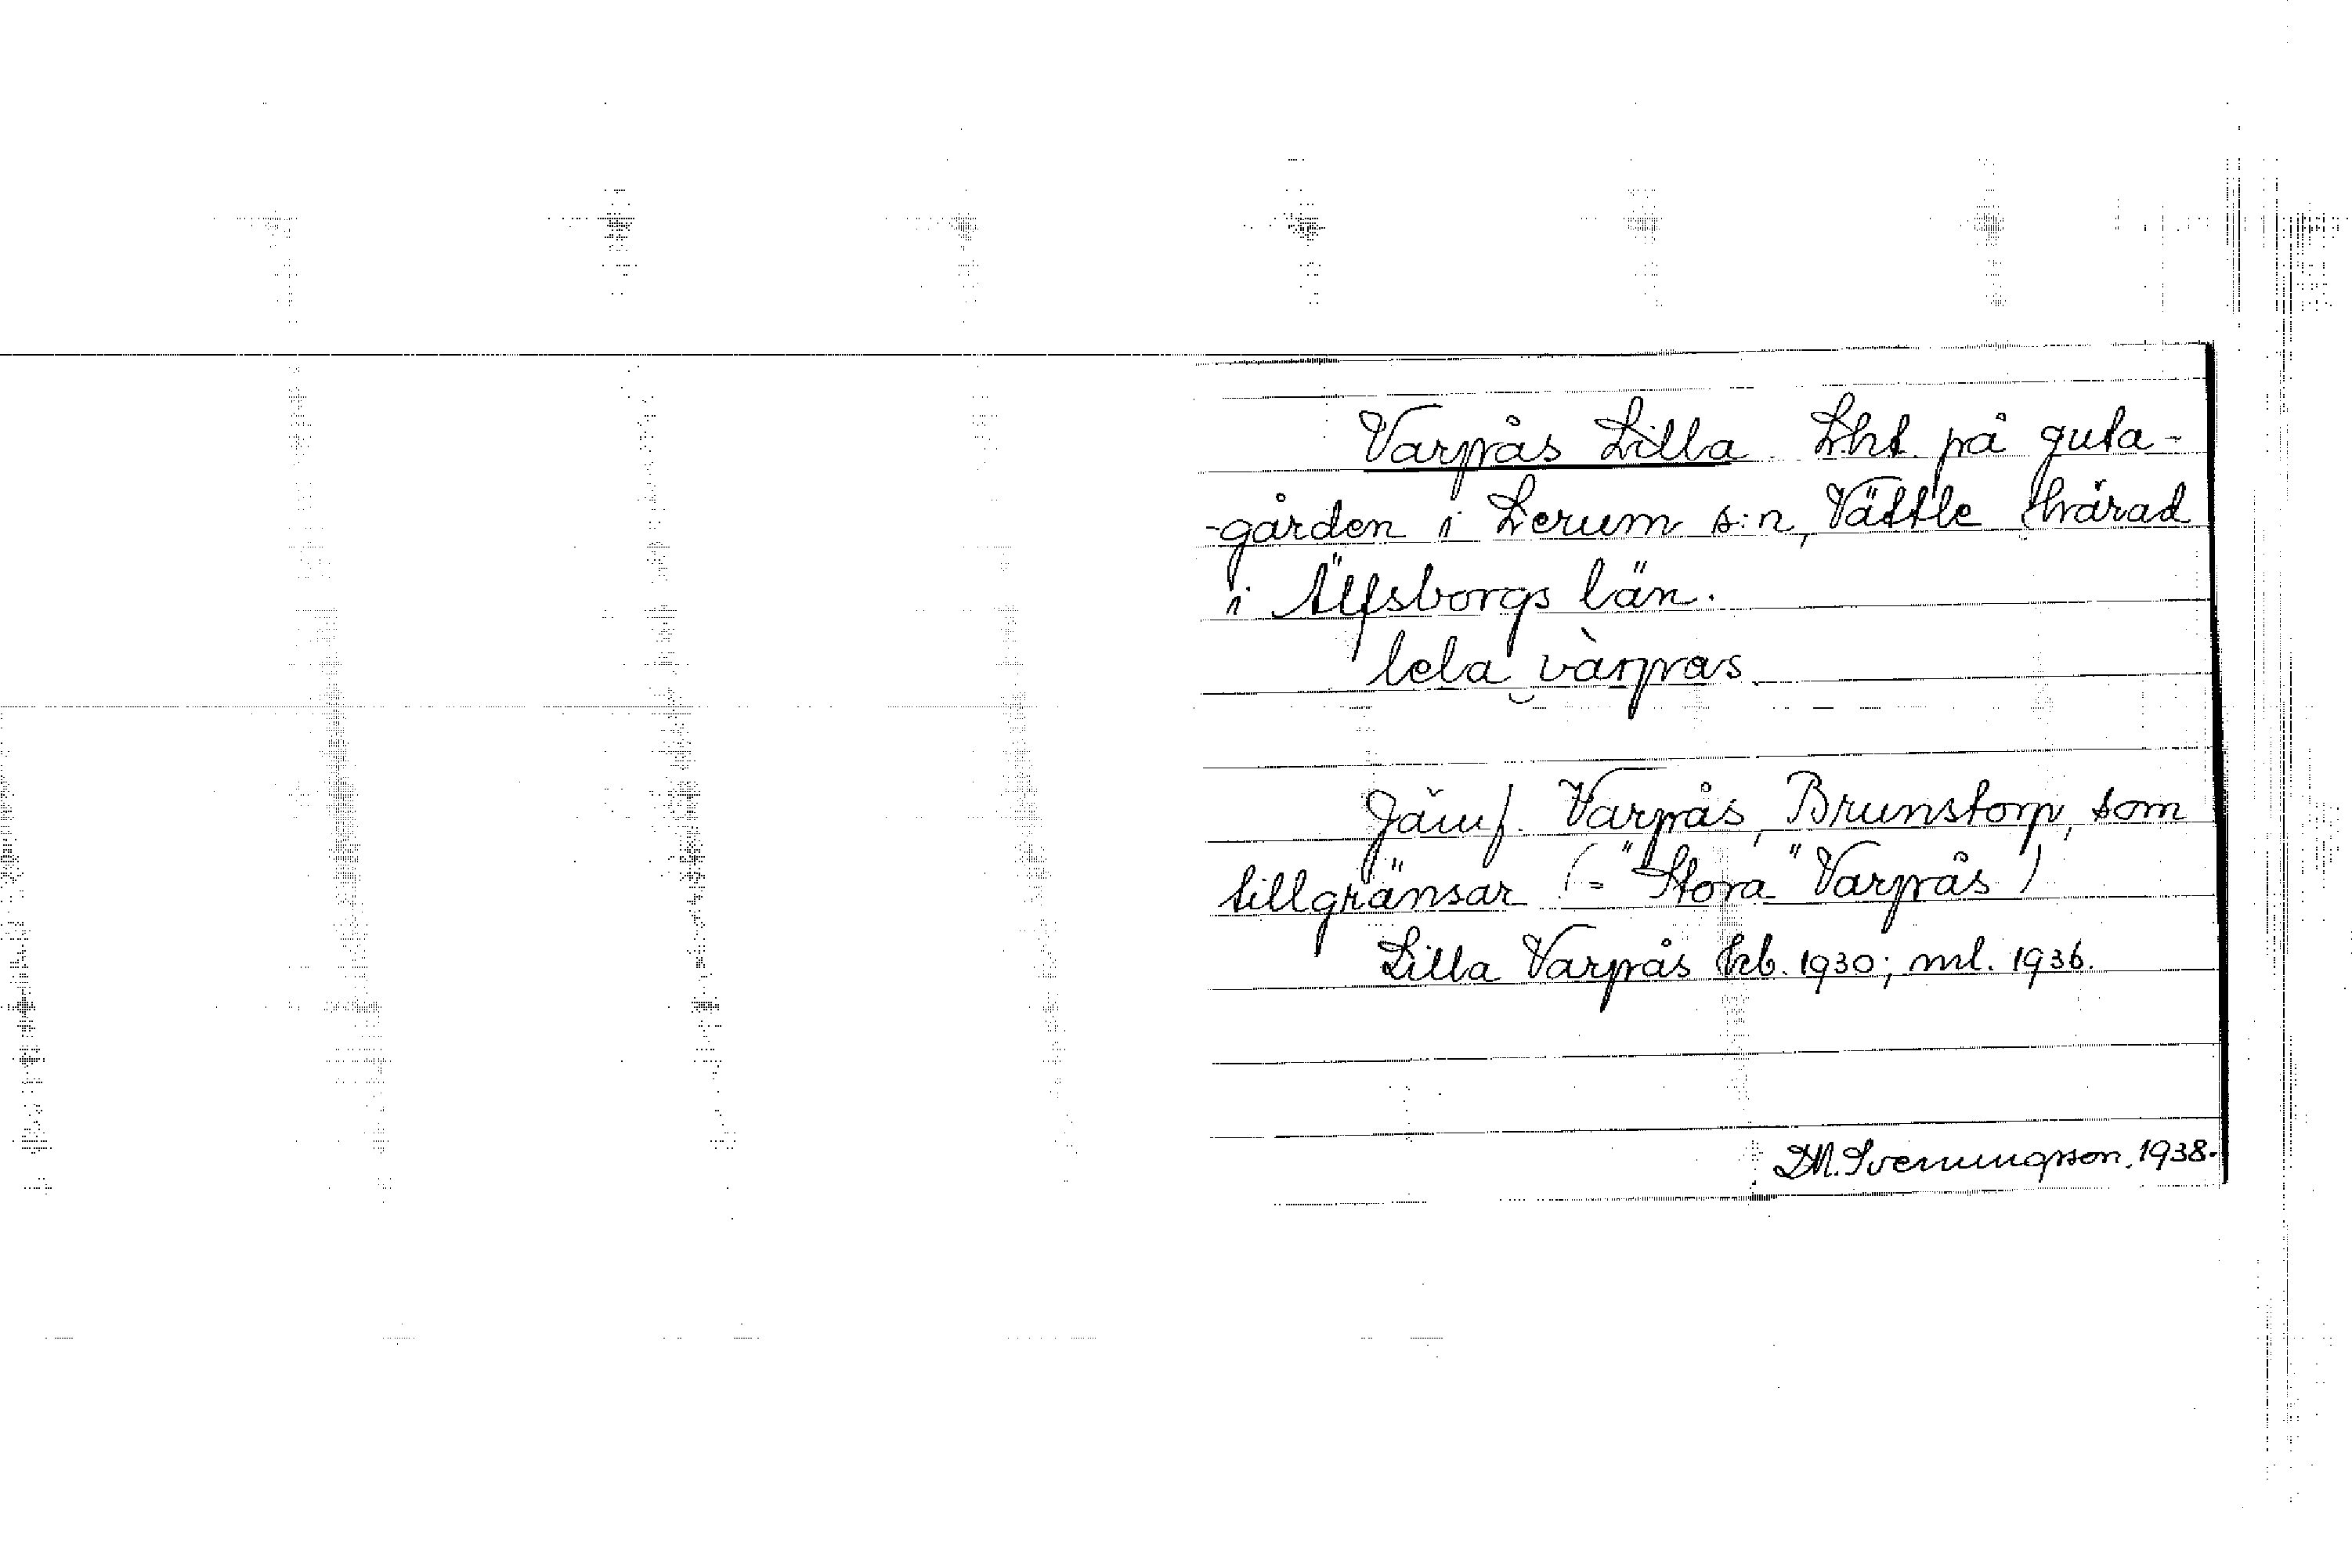 Varpås Lilla. Lht. på guta-
-gården i Lerum s:n, Vättle härad
i Älfsborgs län.
lela vàrpas
Jämf. Varpås, Brunstorp, som
tillgränsar (= "Stora" Varpås)
Lilla Varpås kb. 1930; ml. 1936.
D.M. Svenungsson. 1938.